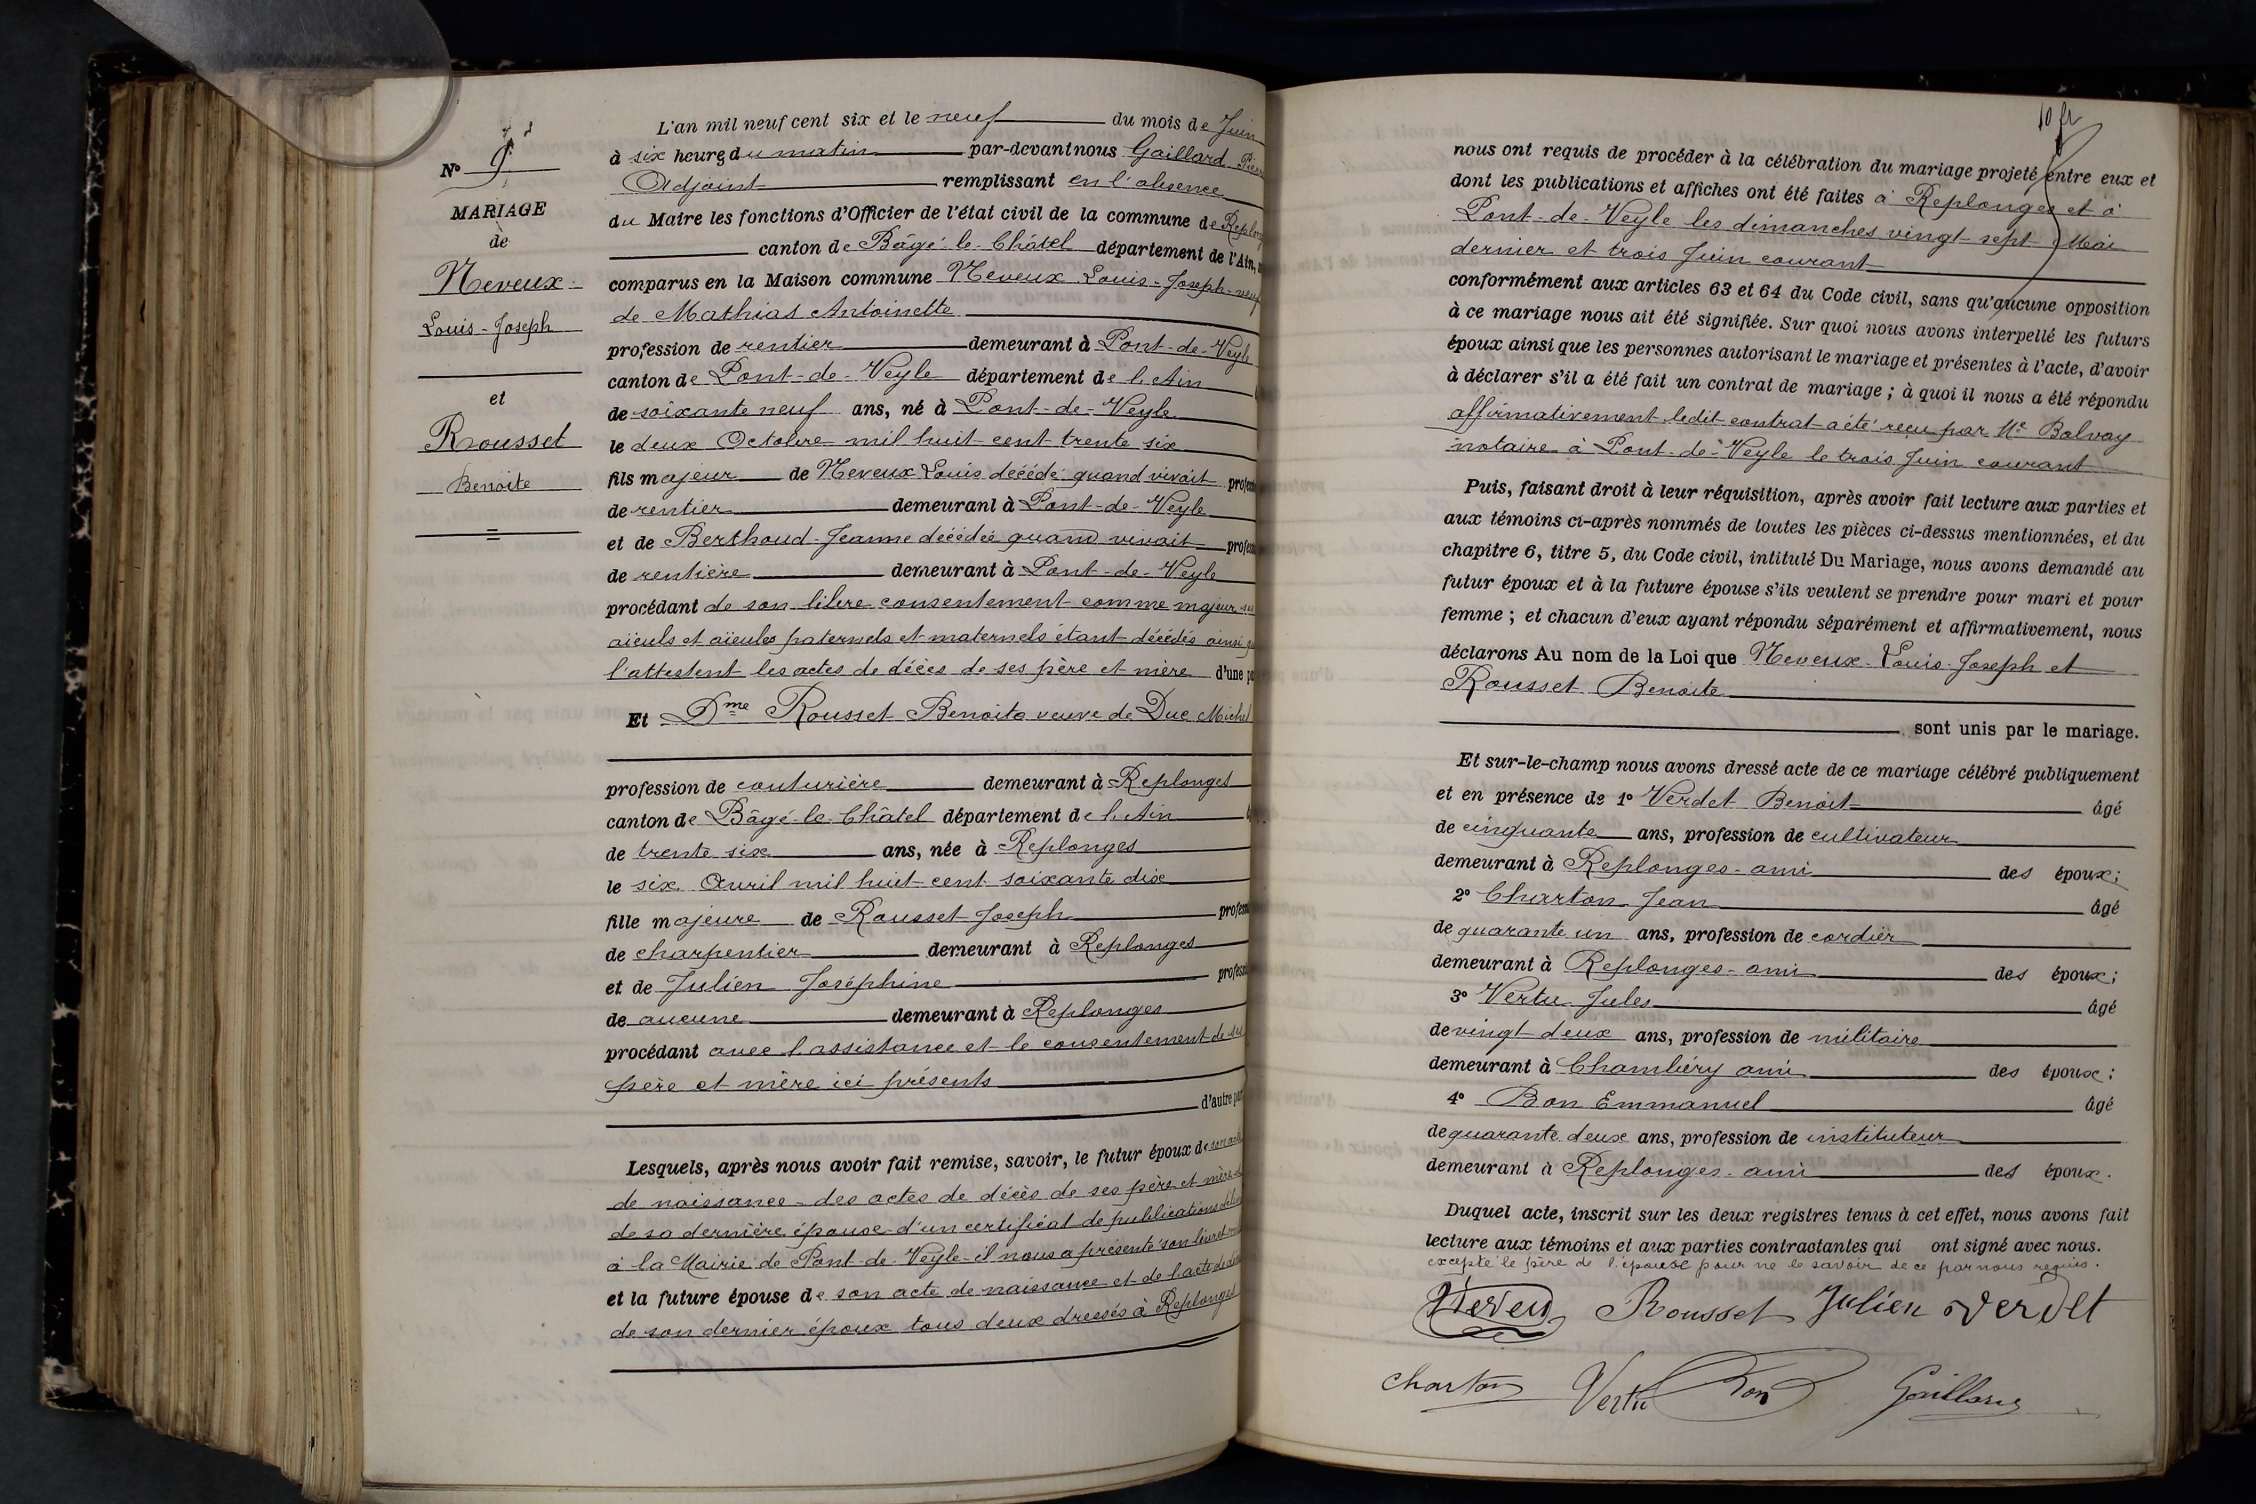 N° 9
MARIAGE
de
Neveux
Louis-Joseph
et
Rousset
Benoite
L'an mil neuf cent six et le neuf du mois de Juin
à six heures du matin par-devant nous Gaillard
Adjoint remplissant en l'absence
du Maire les fonctions d'Officier de l'état civil de la commune de
canton de Bâgé-le-Châtel département de l'Ain,
comparus en la Maison commune Neveux Louis-Joseph veuf
de Mathias Antoinette
profession de rentier demeurant à Pont-de-Veyle
canton de Pont-de-Veyle département de l'Ain
de soixante neuf ans, né à Pont-de-Veyle
le deux Octobre mil huit cent trente six
fils majeur de Neveux Louis décédé quand vivait
de rentier demeurant à Pont-de-Veyle
et de Berthoud Jeanne décédée quand vivait
de rentière demeurant à Pont-de-Veyle
procédant de son libre consentement comme majeur
aïeuls et aïeules paternels et maternels étant décédés ainsi
l'attestent les actes de décès de ses père et mère d'une
Et Dme Rousset Benoite veuve de Duc Michel
profession de couturière demeurant à Replonges
canton de Bâgé-le-Châtel département de l'Ain
de trente six ans, née à Replonges
le six Avril mil huit cent soixante dix
fille majeure de Rousset Joseph
de charpentier demeurant à Replonges
et de Julien Joséphine
de aucune demeurant à Replonges
procédant avec l'assistance et le consentement de
père et mère ici présents
d'autre
Lesquels, après nous avoir fait remise, savoir, le futur époux de son
de naissance - des actes de décès de ses père et mère
de sa dernière épouse - d'un certificat de publications
à la Mairie de Pont-de-Veyle - il nous a présenté son livret
et la future épouse de son acte de naissance et de l'acte de
de son dernier époux tous deux dressés à Replonges
10 fr
nous ont requis de procéder à la célébration du mariage projeté entre eux et
dont les publications et affiches ont été faites à Replonges et à
Pont-de-Veyle les dimanches vingt-sept Mai
dernier et trois Juin courant
conformément aux articles 63 et 64 du Code civil, sans qu'aucune opposition
à ce mariage nous ait été signifiée. Sur quoi nous avons interpellé les futurs
époux ainsi que les personnes autorisant le mariage et présentes à l'acte, d'avoir
à déclarer s'il a été fait un contrat de mariage ; à quoi il nous a été répondu
affirmativement ledit contrat a été reçu par Me Balvay
notaire à Pont-de-Veyle le trois Juin courant
Puis, faisant droit à leur réquisition, après avoir fait lecture aux parties et
aux témoins ci-après nommés de toutes les pièces ci-dessus mentionnées, et du
chapitre 6, titre 5, du Code civil, intitulé Du Mariage, nous avons demandé au
futur époux et à la future épouse s'ils veulent se prendre pour mari et pour
femme ; et chacun d'eux ayant répondu séparément et affirmativement, nous
déclarons Au nom de la Loi que Neveux Louis-Joseph et
Rousset Benoite
sont unis par le mariage.
Et sur-le-champ nous avons dressé acte de ce mariage célébré publiquement
et en présence de 1° Verdet Benoit âgé
de cinquante ans, profession de cultivateur
demeurant à Replonges - ami des époux ;
2° Charton Jean âgé
de quarante un ans, profession de cordier
demeurant à Replonges - ami des époux ;
3° Vertu Jules âgé
de vingt deux ans, profession de militaire
demeurant à Chambéry ami des époux ;
4° Bon Emmanuel âgé
de quarante deux ans, profession de instituteur
demeurant à Replonges - ami des époux.
Duquel acte, inscrit sur les deux registres tenus à cet effet, nous avons fait
lecture aux témoins et aux parties contractantes qui ont signé avec nous.
excepté le père de l'épouse pour ne le savoir de ce par nous requis.
Neveu Rousset Julien Verdet
Charton Vertu Bon Gaillard